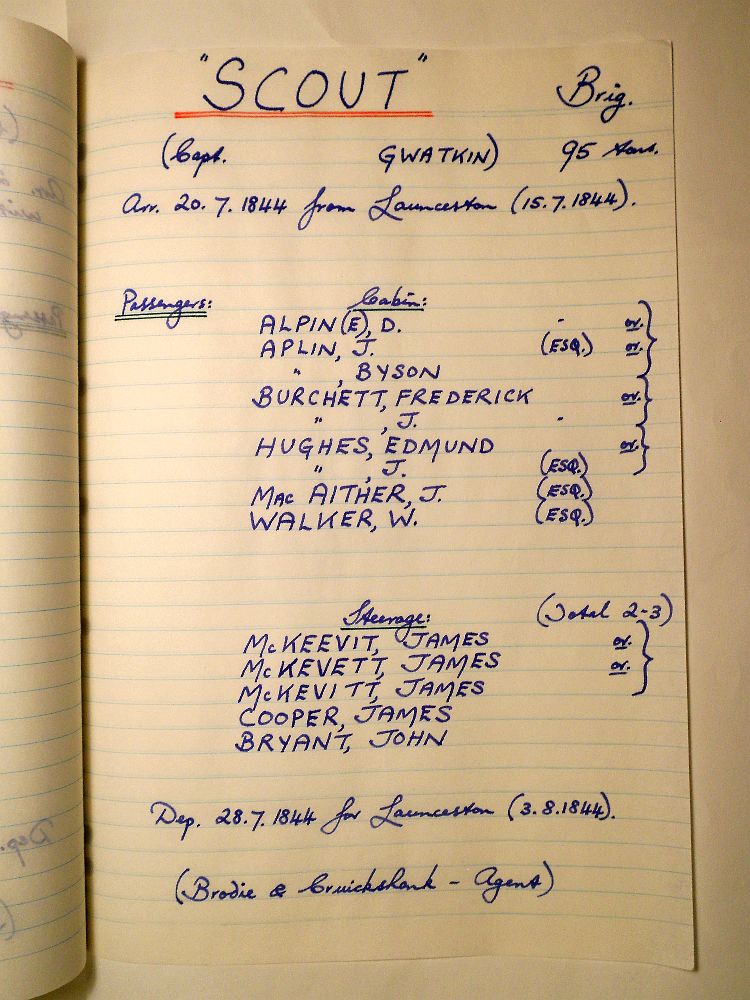 "SCOUT" Brig.
(Capt. GWATKIN) 95 tons.
Arr. 20.7.1844 from Launceston (15.7.1844).
Passengers: Cabin:
ALPIN(E), D. - or.
APLIN, J. (ESQ.) or.
" , BYSON
BURCHETT, FREDERICK or.
" , J. -
HUGHES, EDMUND or.
" , J. (ESQ.)
Mac AITHER, J. (ESQ.)
WALKER, W. (ESQ.)
Steerage: (Total 2-3)
McKEEVIT, JAMES or.
McKEVETT, JAMES or.
McKEVITT, JAMES
COOPER, JAMES
BRYANT, JOHN
Dep. 28.7.1844 for Launceston (3.8.1844).
(Brodie & Cruickshank - Agent)